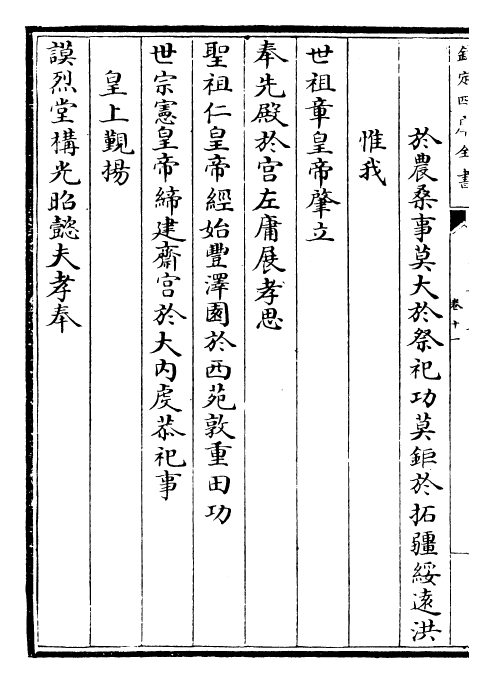 欽定四庫全書
卷十一
於農桑事莫大於祭祀功莫鉅於拓疆綏遠洪
惟我
世祖章皇帝肇立
奉先殿於宫左庸展孝思
聖祖仁皇帝經始豐澤園於西苑敦重田功
世宗憲皇帝締建齋宫於大内虔恭祀事
皇上覲揚
謨烈堂構光昭懿夫孝奉